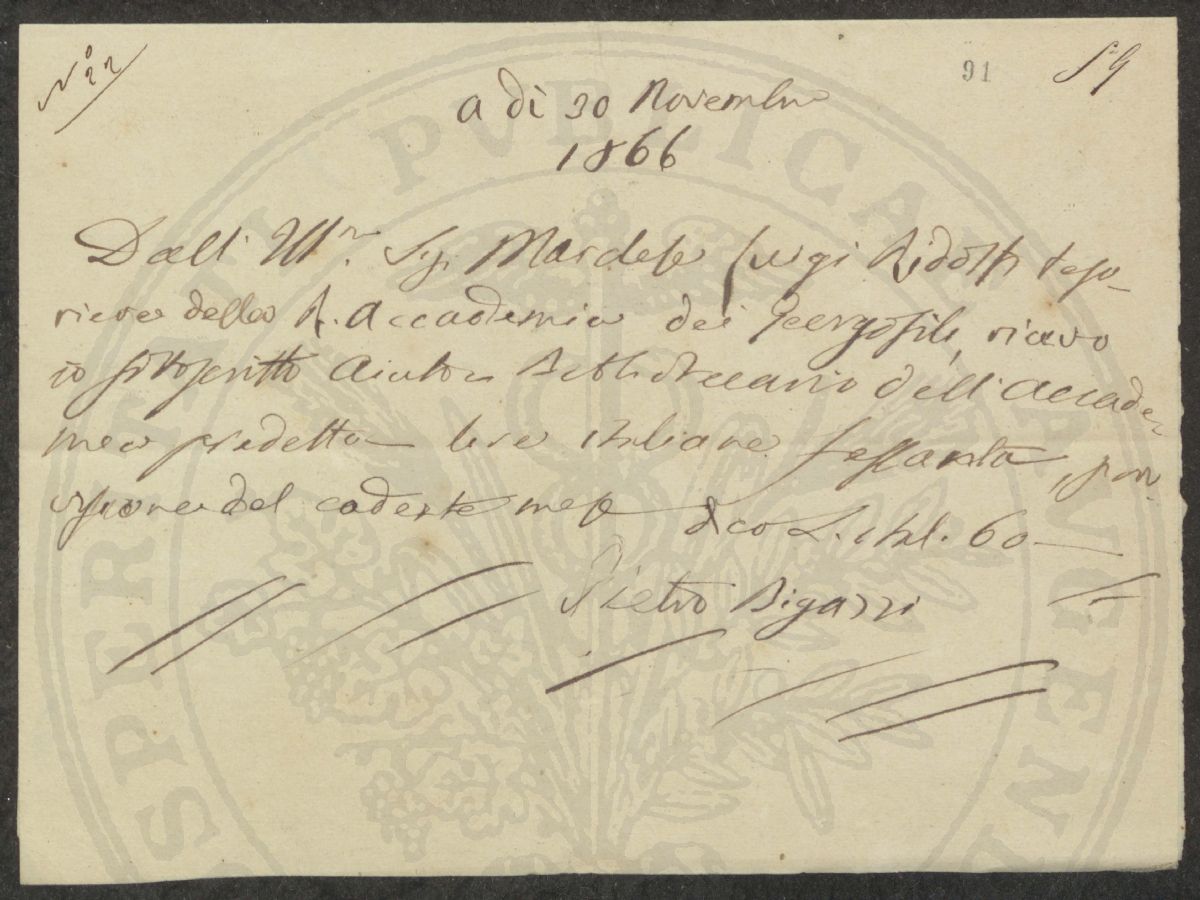 N° 22
91
59
a dì 30 Novembre
1866
Dall' Ill.mo Sig. Marchese Luigi Ridolfi teso-
riere della R. Accademia dei Georgofili, ricevo
io sottoscritto Aiuto Bibliotecario dell' Accade-
mia predetta lire italiane sessanta, prov-
visione del cadente mese dico L. ital. 60
Pietro Bigazzi
PROSPERITATI PVBLICAE AVGENDAE